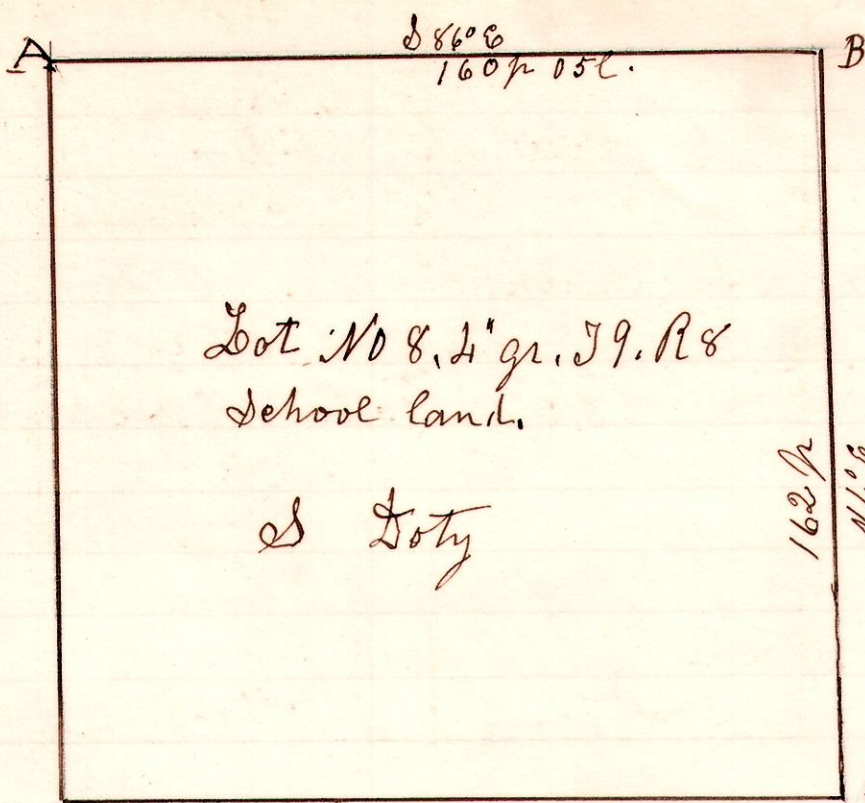 S 86° E
A B
160 p 05 l.
Lot No 8. 4" qr. T9. R8
School land.
S Doty
162 p